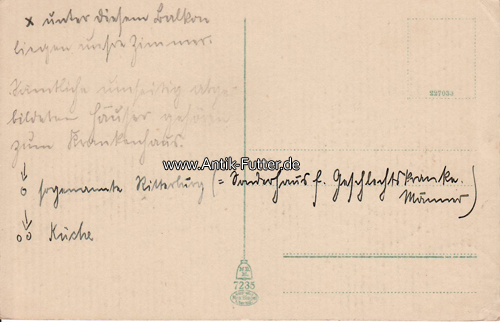 x unter diesem Balkon
liegen unsre Zimmer.
Sämtliche umseitig abge-
bildeten Häuser gehören
zum Krankenhaus.
www.Antik-Futter.de
sogenannte Ritterburg (= Sonderhaus f. Geschlechtskranke.
Männer)
Küche
7235